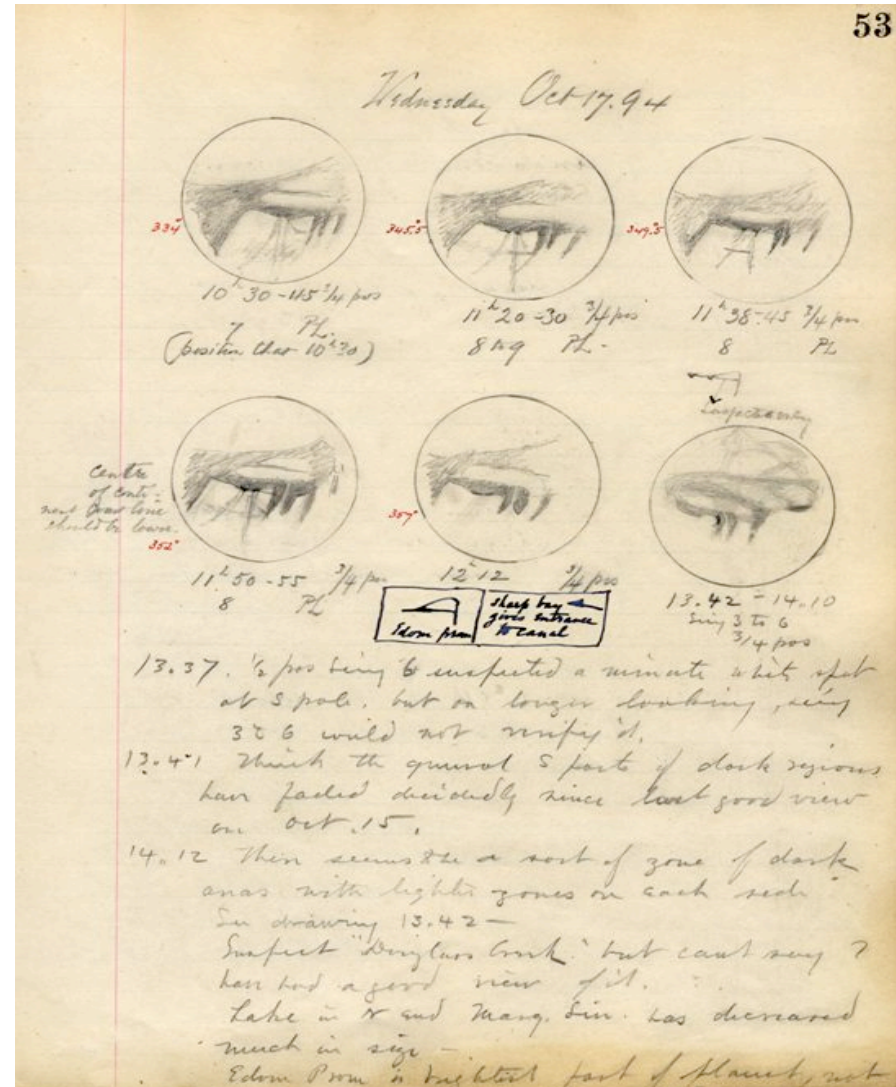 53
Wednesday Oct 17. 94
334°
345.°5
349.°5
10ʰ30-45 3/4 pos
7 PL.
(position that 10ʰ30)
11ʰ20-30 3/4 pos
8 to 9 PL.
11ʰ38-45 3/4 pos
8 PL
Suspected only
centre
of conti-
nent
should be lower
352°
357°
11ʰ50-55 3/4 pos
8 PL
12ʰ12 3/4 pos
Edom prom
sharp bay
gives entrance
to canal
13.42 - 14.10
Seeing 3 to 6
3/4 pos
13.37. 1/2 pos Seeing 6 suspected a minute white spot
at S pole. but on longer looking, seeing
3 to 6 could not verify it.
13.41 Think the general S parts of dark regions
have faded decidedly since last good view
on Oct. 15.
14.12 There seems to be a sort of zone of dark
areas with lighter zones on each side
See drawing 13.42 —
Suspect "Douglass Creek" but can't say I
have had a good view of it.
Lake in N end Marg. Sin. has decreased
much in size —
Edom Prom is brightest part of planet, not